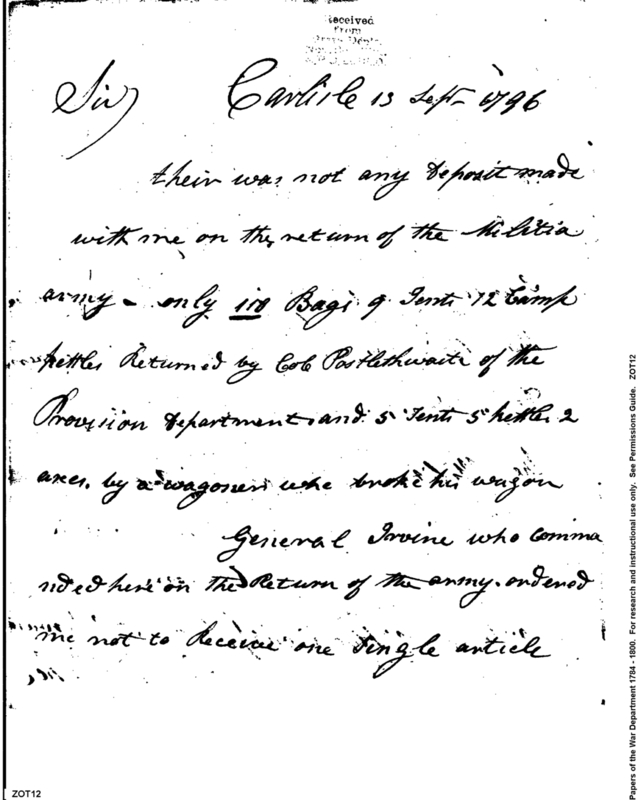 Received
from
Sir
Carlisle 13 Sept 1796
their was not any Deposit made
with me on the return of the Militia
army - only 110 Bags 9 Tents 72 Camp
kettles Returned by Col Postlethwaite of the
Provision Department and 5 Tents 5 kettles 2
axes. by a wagoner who broke his wagon
General Irvine who comma
nded here on the Return of the army. ordered
me not to Receive one Single article
ZOT12
Papers of the War Department 1784 - 1800. For research and instructional use only. See Permissions Guide. ZOT12